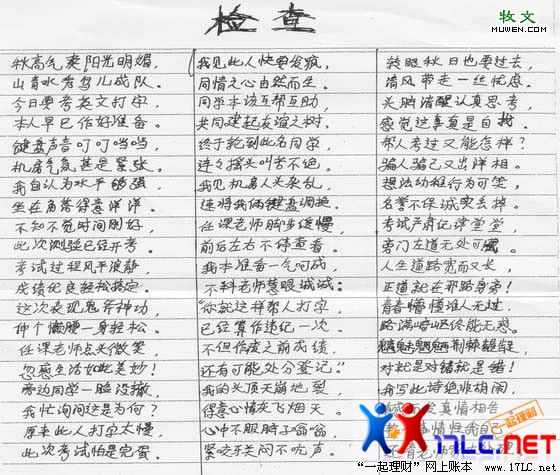 检查
牧文
MUWEN.COM
秋高气爽阳光明媚，
山青水秀鸟儿成队。
今日要考英文打字，
本人早已作好准备。
键盘声音叮叮当当，
机房气氛甚是紧张。
我自认为水平够强，
坐在角落得意洋洋。
不知不觉时间刚好，
此次测验已经开考。
考试过程风平浪静，
成绩优良轻松搞定。
这次表现鬼斧神功，
伸个懒腰一身轻松。
任课老师点头微笑，
忽感生活如此美妙！
旁边同学一脸没辙，
我忙询问这是为何？
原来此人打字太慢，
此次考试怕是完蛋。
我见此人快要发疯，
同情之心由然而生。
同学本该互帮互助，
共同建起友谊之树。
终于轮到此名同学，
连连摇头叫苦不绝。
我见机房人头杂乱，
速将我俩键盘调换。
任课老师脚步缓慢，
前后左右不停查看。
我本准备一气呵成，
不料老师慧眼诚诚。
"你就这样帮人打字，
已经算作违纪一次。
不但作废之前成绩，
还有可能处分登记。"
我的头顶天崩地裂，
得意心情灰飞烟灭。
心中不服脖子 
紧咬牙关闷不吭声。
转眼秋日也要过去，
清风带走一丝忧虑。
头脑清醒认真思考，
感觉这事真是自找。
帮人考过又能怎样？
骗人骗己又出洋相。
想法幼稚行为可笑，
名誉不保诚实丢掉。
考试严肃纪律堂堂，
旁门左道无处可
人生道路宽而又长，
正道就在那路旁！
青春懵懂谁人无过，
路满崎岖终能无悲。
荆棘
对就是对错就是错！
我写此诗绝非胡闹，
真情相告
我自己
17LC.NET
"一起理财"网上账本 www.17LC.net